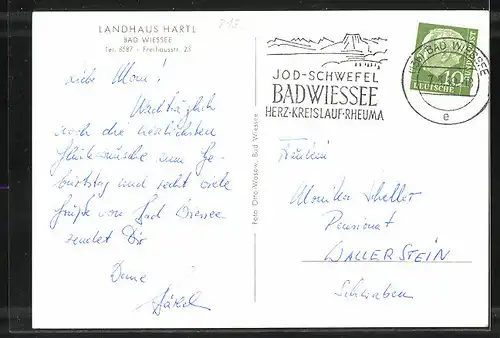 LANDHAUS HARTL
BAD WIESSEE
Tel. 8587 - Freihausstr. 25
Liebe Moni!
Nachträglich
noch die herzlichsten
Glückwünsche zum Ge-
burtstag und recht viele
Grüße von Bad Wiessee
sendet Dir
Deine
Foto Otto Wasow, Bad Wiessee
JOD-SCHWEFEL
BAD WIESSEE
HERZ-KREISLAUF-RHEUMA
BAD WIESSEE
e
10
DEUTSCHE
Fräulein
Monika Scheller
Pensionat
WALLERSTEIN
Schwaben